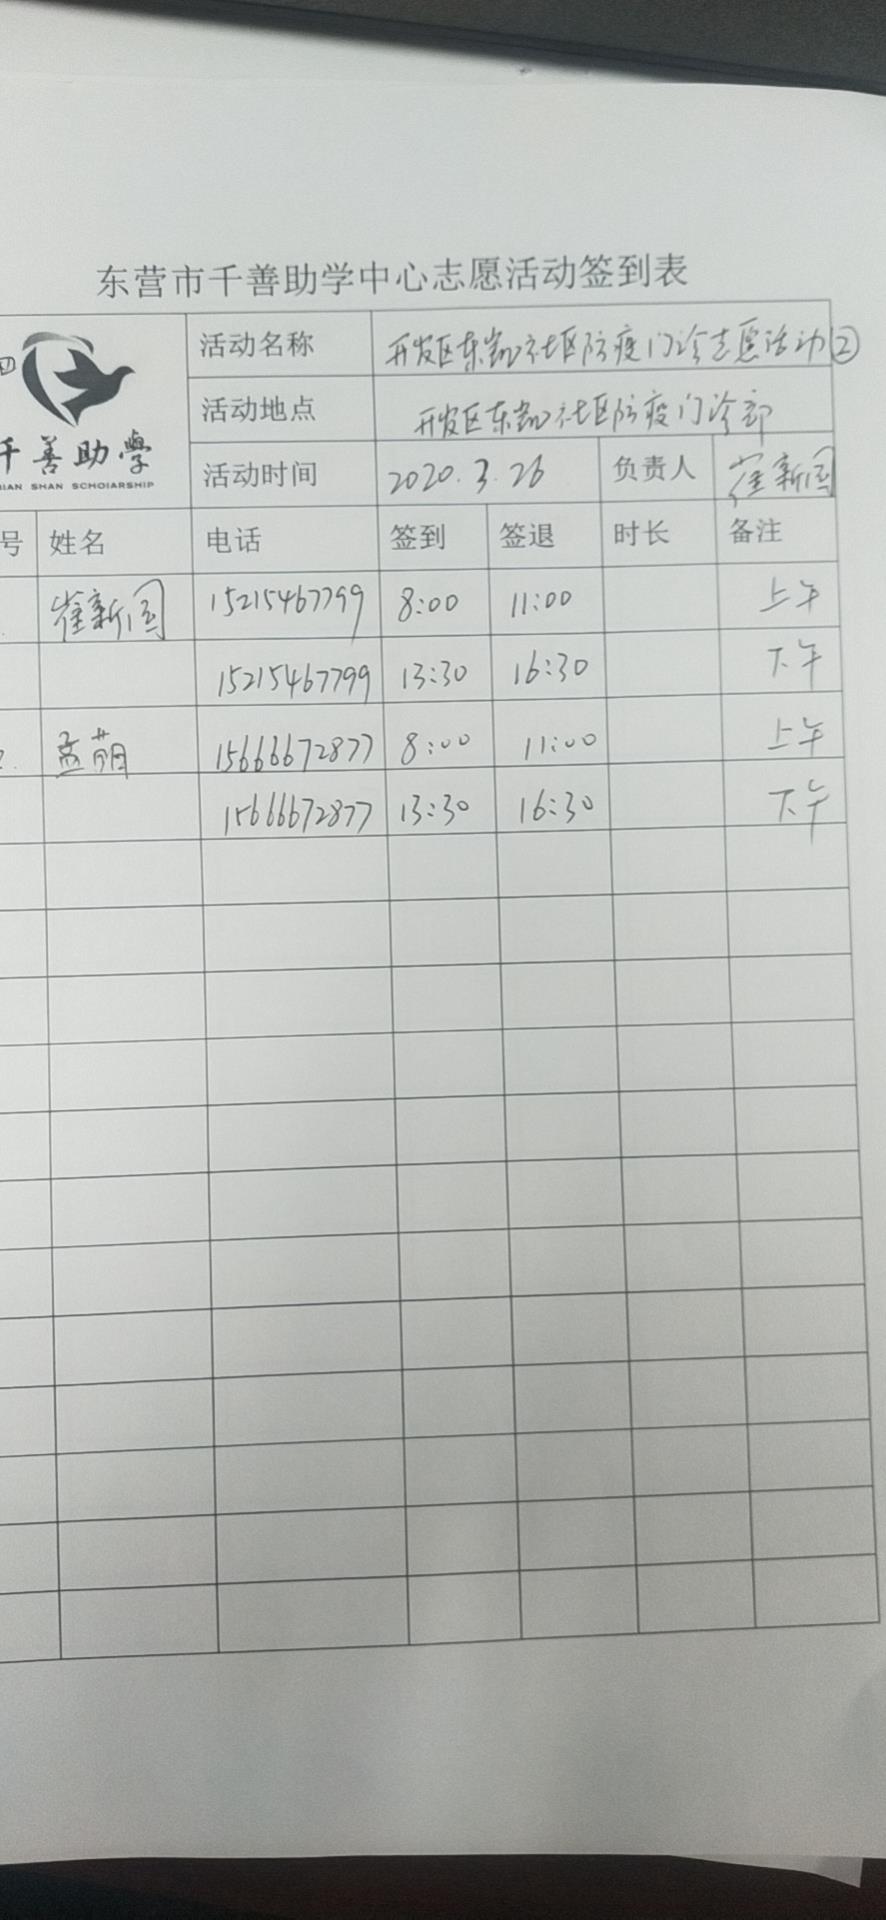 东营市千善助学中心志愿活动签到表
千善助學
IAN SHAN SCHOIARSHIP
活动名称 开发区东凯社区防疫门诊志愿活动②
活动地点 开发区东凯社区防疫门诊部
活动时间 2020.3.26 负责人 崔新国
号 姓名 电话 签到 签退 时长 备注
崔新国 15215467799 8:00 11:00 上午
15215467799 13:30 16:30 下午
2. 孟萌 15666672877 8:00 11:00 上午
15666672877 13:30 16:30 下午